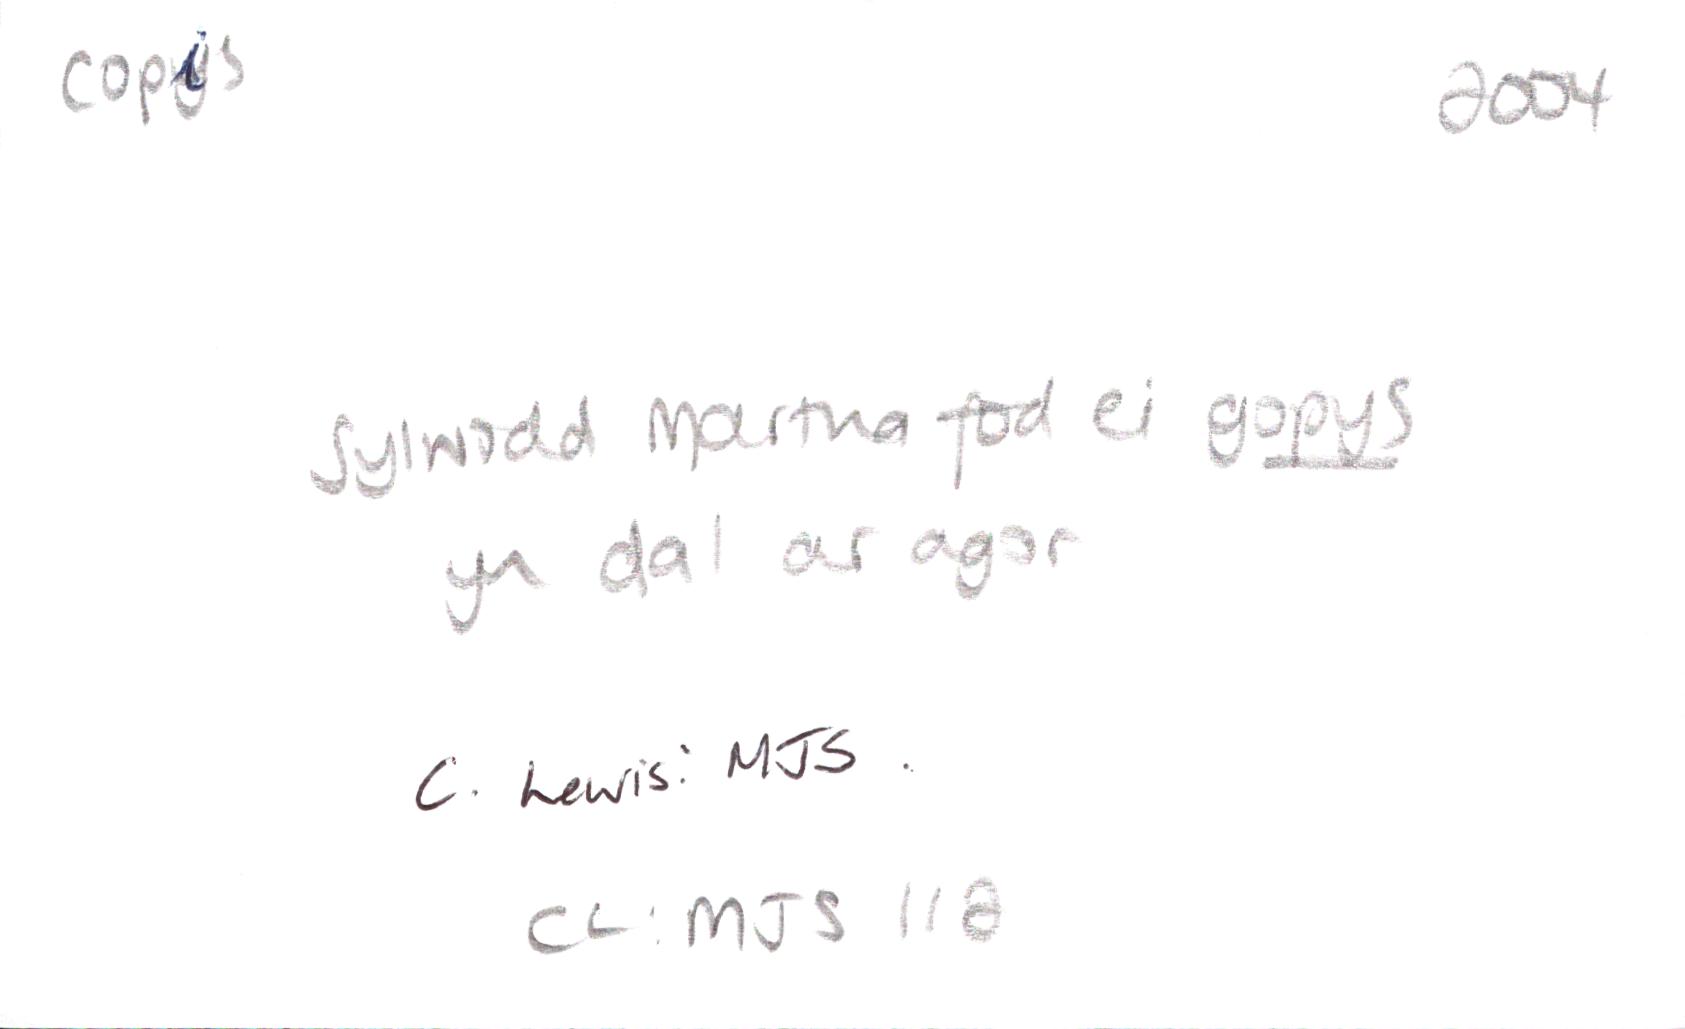 copis 2004
Sylwodd Martha fod ei gopys
yn dal ar agor
C. Lewis: MJS.
CL: MJS 118